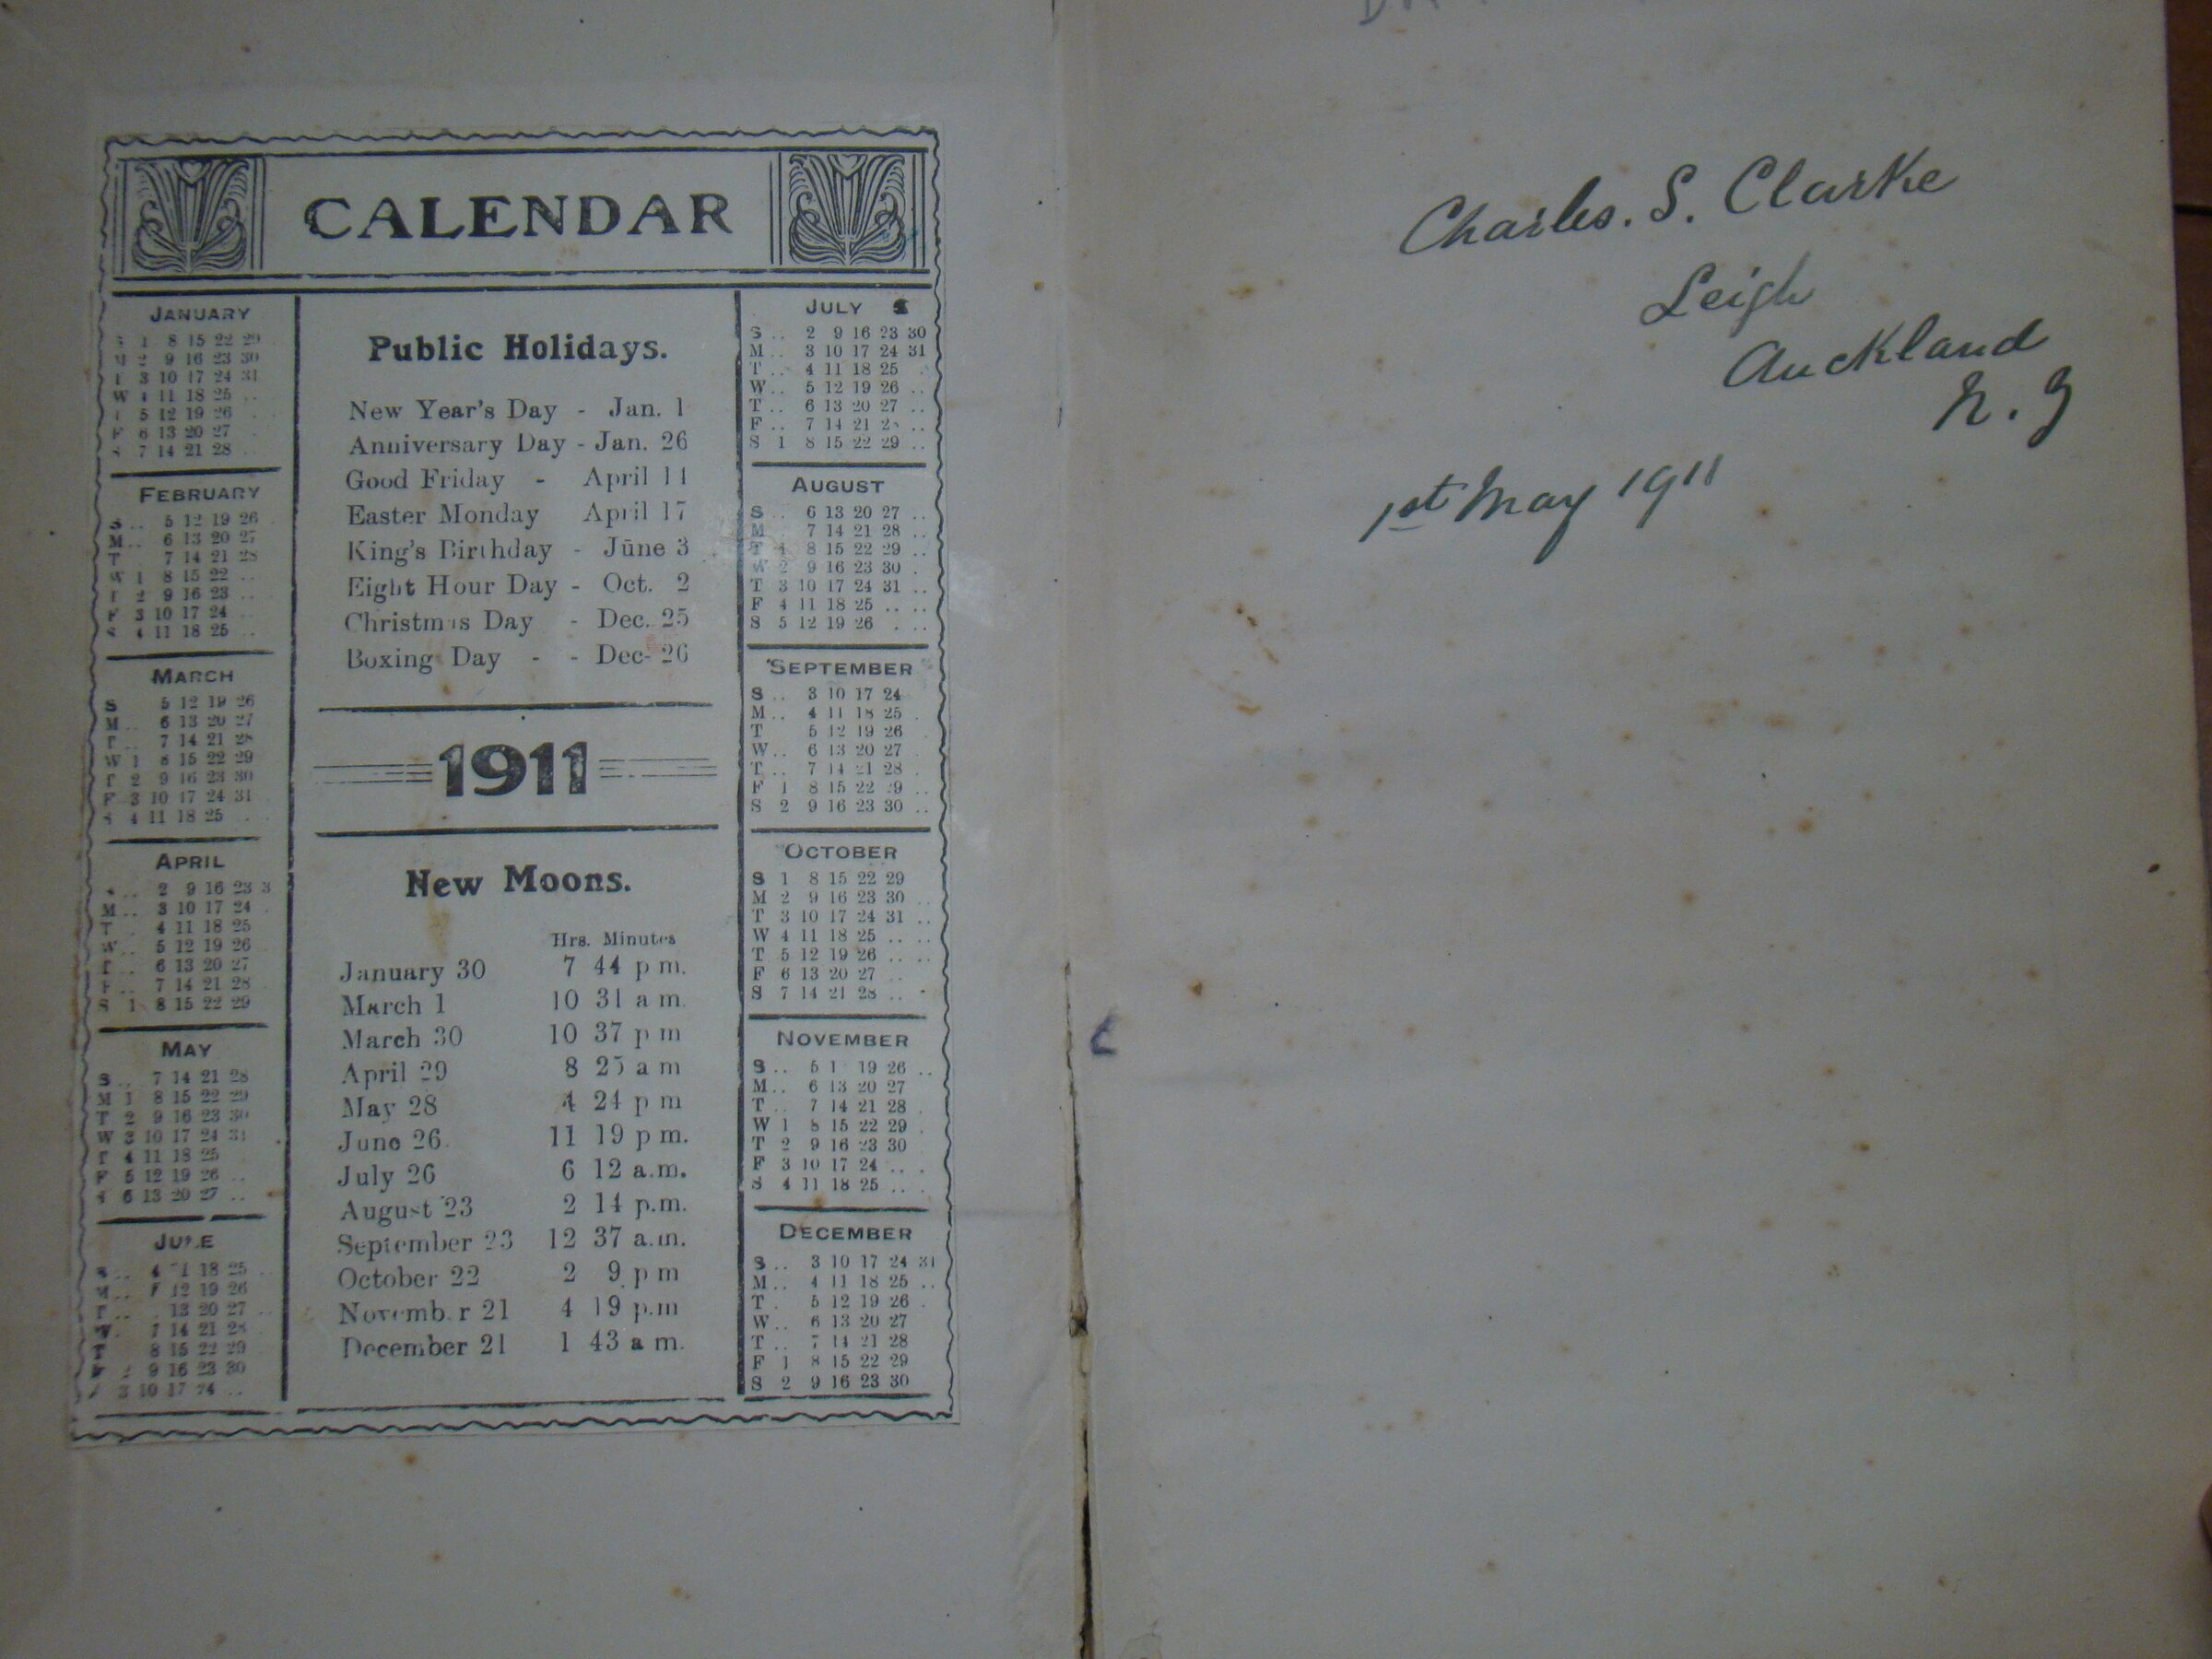 CALENDAR
JANUARY
S 1 8 15 22 29
M 2 9 16 23 30
T 3 10 17 24 31
W 4 11 18 25 ..
5 12 19 26
F 6 13 20 27
S 7 14 21 28 ..
FEBRUARY
S .. 5 12 19 26
M .. 6 13 20 27
T 7 14 21 28
W 1 8 15 22 ..
T 2 9 16 23 ..
F 3 10 17 24 ..
S 4 11 18 25 ..
MARCH
S 5 12 19 26
M .. 6 13 20 27
T .. 7 14 21 28
W 1 8 15 22 29
T 2 9 16 23 30
F 3 10 17 24 31
S 4 11 18 25
APRIL
.. 2 9 16 23 3
M .. 3 10 17 24
T . 4 11 18 25
W .. 5 12 19 26
T .. 6 13 20 27
F .. 7 14 21 28
S 1 8 15 22 29
MAY
S .. 7 14 21 28
M 1 8 15 22 29
T 2 9 16 23 30
W 3 10 17 24 31
T 4 11 18 25
F 5 12 19 26 ..
S 6 13 20 27 ..
JUNE
S .. 4 18 25
M .. 12 19 26
T .. 13 20 27
W. 7 14 21 28
T 8 15 22 29
F 2 9 16 23 30
3 10 17 24 ..
Public Holidays.
New Year's Day - Jan. 1
Anniversary Day - Jan. 26
Good Friday - April 14
Easter Monday April 17
King's Birthday - June 3
Eight Hour Day - Oct. 2
Christmas Day - Dec. 25
Boxing Day - - Dec- 26
1911
New Moons.
Hrs. Minutes
January 30 7 44 p m.
March 1 10 31 a m.
March 30 10 37 p m
April 29 8 25 a m
May 28 4 24 p m
June 26 11 19 p m.
July 26 6 12 a.m.
August 23 2 14 p.m.
September 23 12 37 a.m.
October 22 2 9 p m
November 21 4 19 p.m
December 21 1 43 a m.
JULY
S .. 2 9 16 23 30
M .. 3 10 17 24 31
T .. 4 11 18 25
W .. 5 12 19 26 ..
T .. 6 13 20 27 ..
F .. 7 14 21 28 ..
S 1 8 15 22 29 ..
AUGUST
S .. 6 13 20 27 ..
M 7 14 21 28 ..
T 1 8 15 22 29 ..
W 2 9 16 23 30 .
T 3 10 17 24 31 ..
F 4 11 18 25 .. ..
S 5 12 19 26 . ..
SEPTEMBER
S .. 3 10 17 24
M .. 4 11 18 25 .
T 5 12 19 26
W .. 6 13 20 27
T .. 7 14 21 28 .
F 1 8 15 22 29 ..
S 2 9 16 23 30 ..
OCTOBER
S 1 8 15 22 29
M 2 9 16 23 30 ..
T 3 10 17 24 31 ..
W 4 11 18 25 .. ..
T 5 12 19 26 .. ..
F 6 13 20 27 ..
S 7 14 21 28 ..
NOVEMBER
S .. 5 19 26 ..
M .. 6 13 20 27
T .. 7 14 21 28 .
W 1 8 15 22 29 .
T 2 9 16 23 30
F 3 10 17 24 .. .
S 4 11 18 25 .. .
DECEMBER
S .. 3 10 17 24 31
M .. 4 11 18 25 ..
T . 5 12 19 26 .
W .. 6 13 20 27
T .. 7 14 21 28
F 1 8 15 22 29
S 2 9 16 23 30
Charles. S. Clarke
Leigh
Auckland
N. Z
1st May 1911